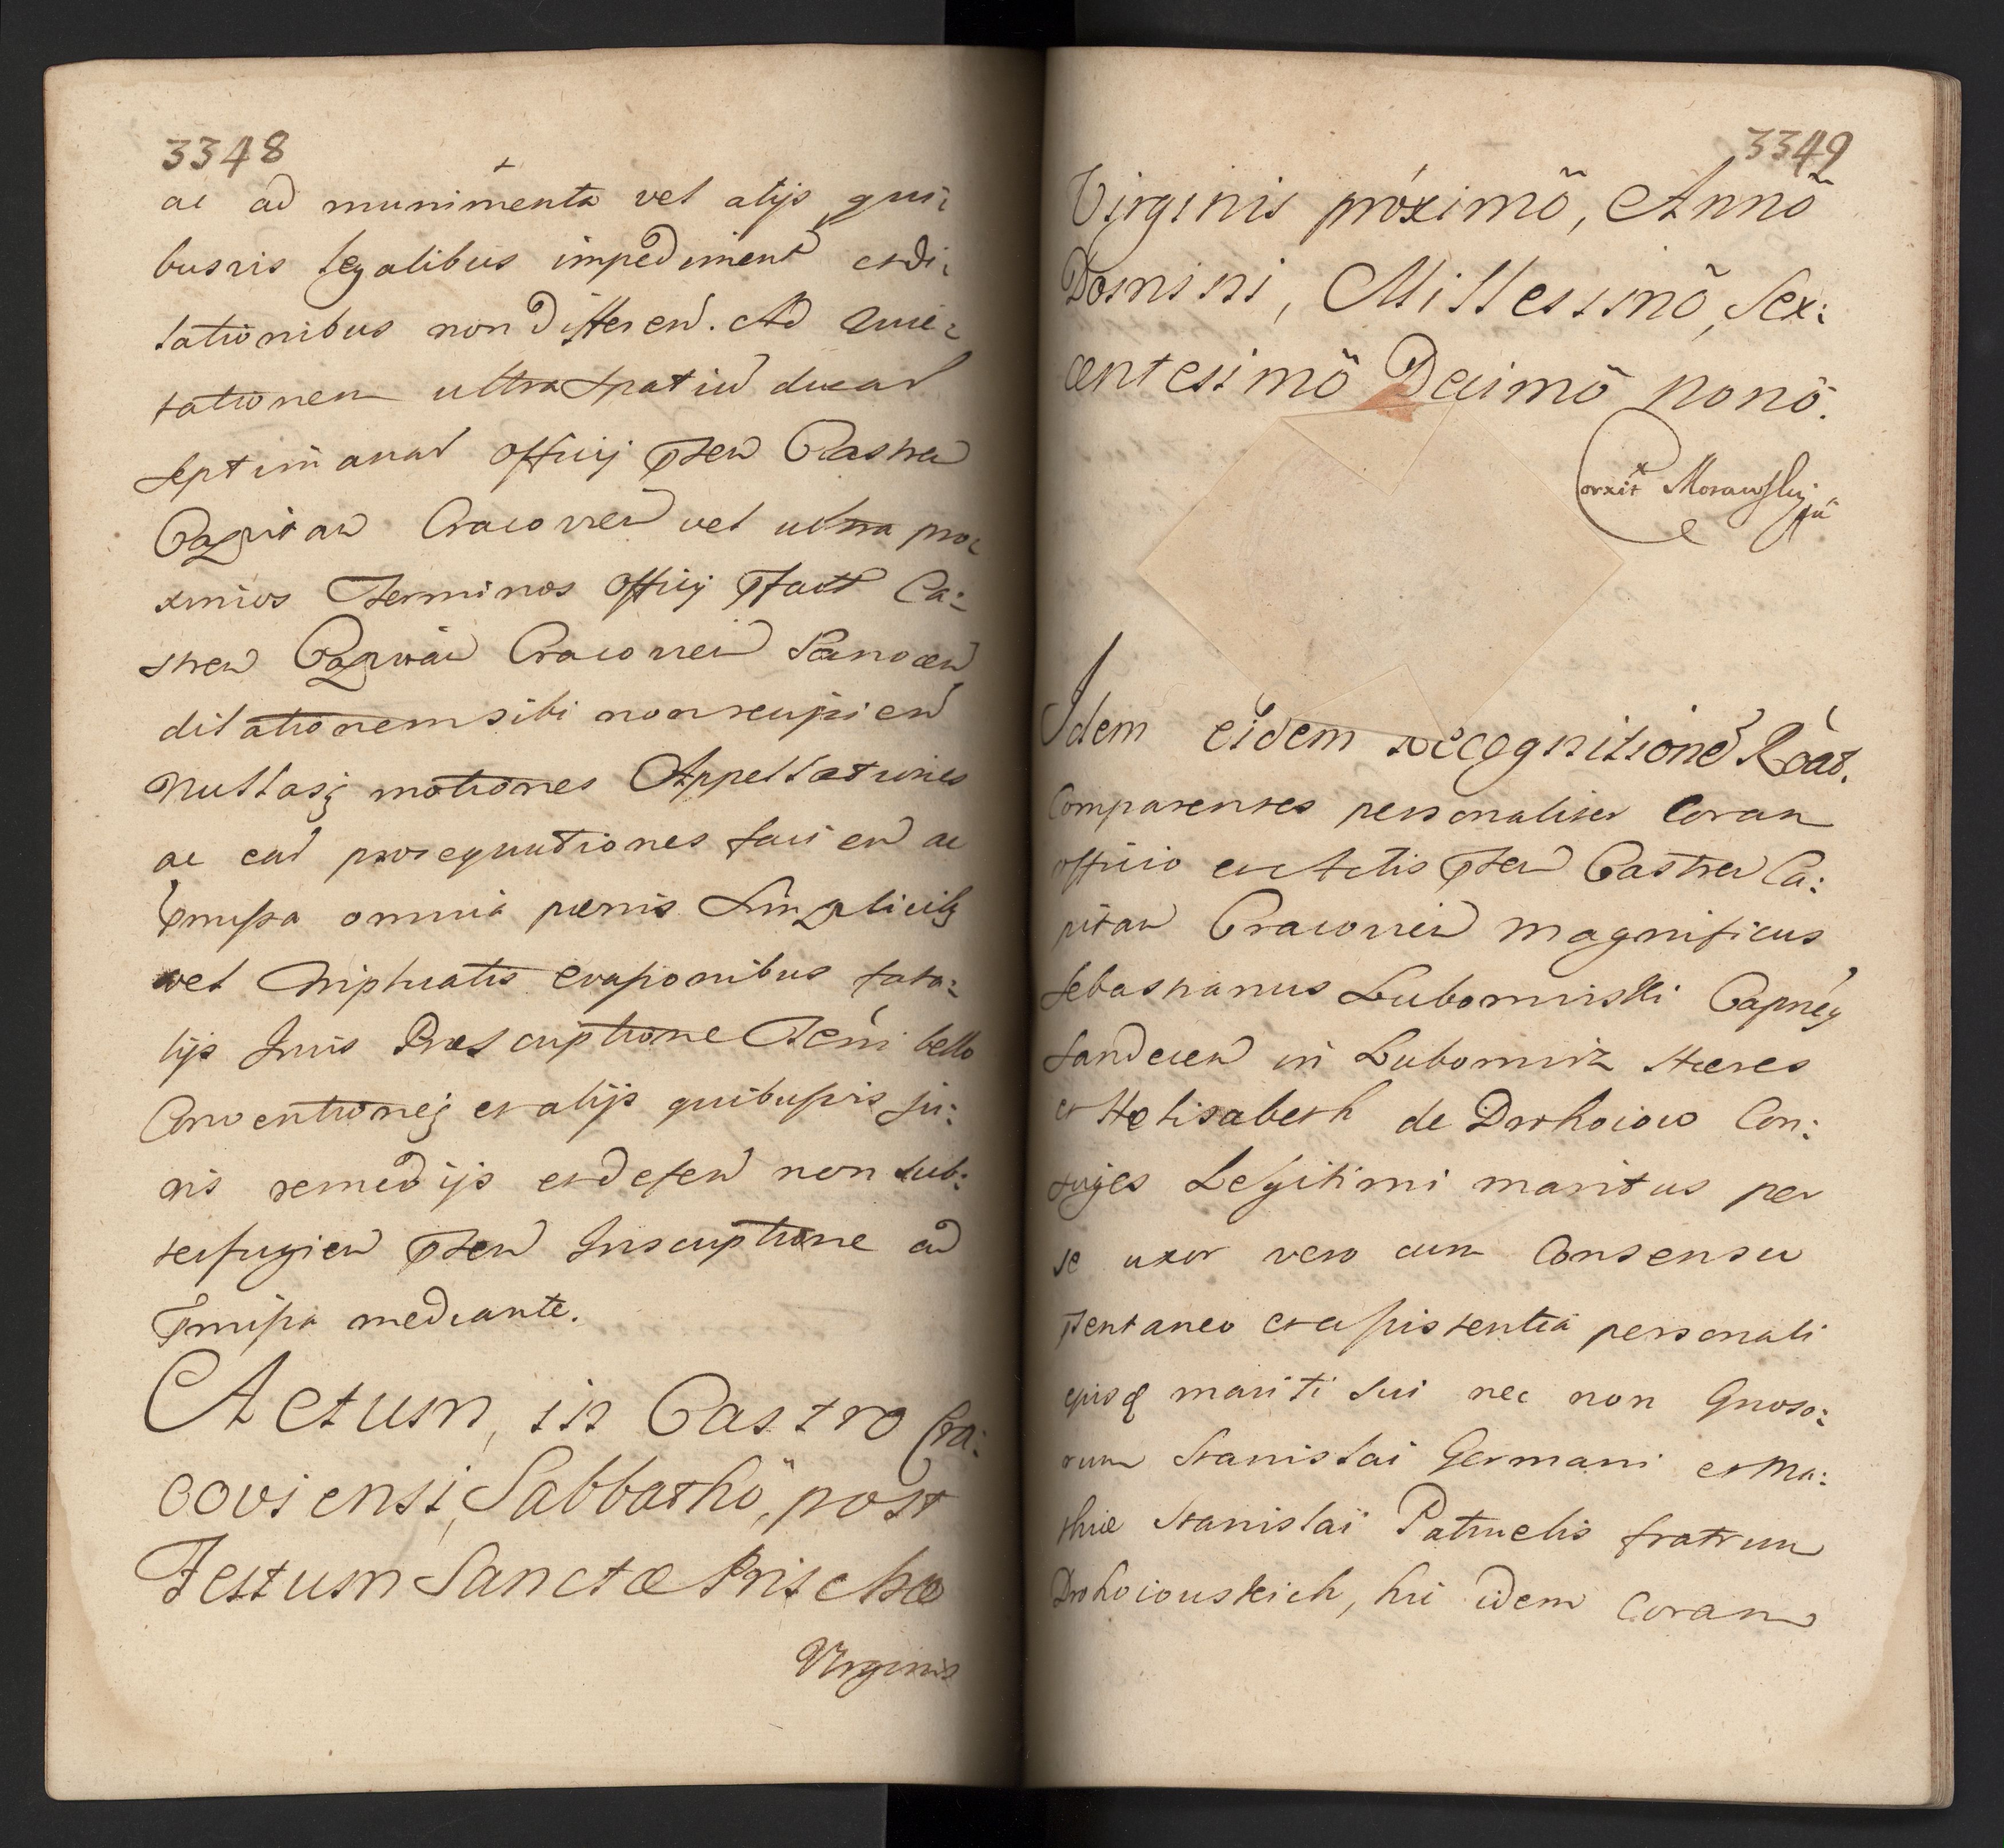 3348
ac ad munimenta vel alijs qui:
busvis legalibus impediment et di:
lationibus non differen. Ad Quie:
tationem ultra spatiu duar
septimanar Officij pten Castren
Capitan Cracovien vel ultra pro:
ximios Terminos Officij pfatt Ca:
stren Capitan Cracovien
dilationem sibi non recipien
Nullasq motiones Appellationes
ac ear prosequutiones facien ac
pmissa omnia pœnis Simplicib
vel Triplicatis evasionibus tota:
lijs Juris Præscriptione Terri bello
Conventioneq et alijs quibusvis ju:
ris remedijs et defen non sub:
terfugien pten Inscriptione ad
pmissa mediante.
Actum, in Castro Cra:
coviensi, Sabbathô, post
Festum Sanctæ Prischæ
Virginis
3349
Virginis próximô, Annô
Domini, Millesimô, Sex:
centesimô Decimô nonô.
Corxit Morawskij
Idem eidem recognitione Roat.
Comparentes personaliter Coram
officio et Actis pten Castren Ca:
pitan Cracovien Magnificus
Sebastianus Lubomirski Capney
Sandecen in Lubomirz Hæres
et Helisabeth de Drohoiow Con:
iuges Legitimi maritus per
se uxor vero cum Consensu
ptentaneo et assistentia personali
eiusq mariti sui nec non Gnoso:
rum Stanislai Germani et Ma:
thiæ Stanislai Patruelis fratrum
Drohoiouskich, hi idem Coram